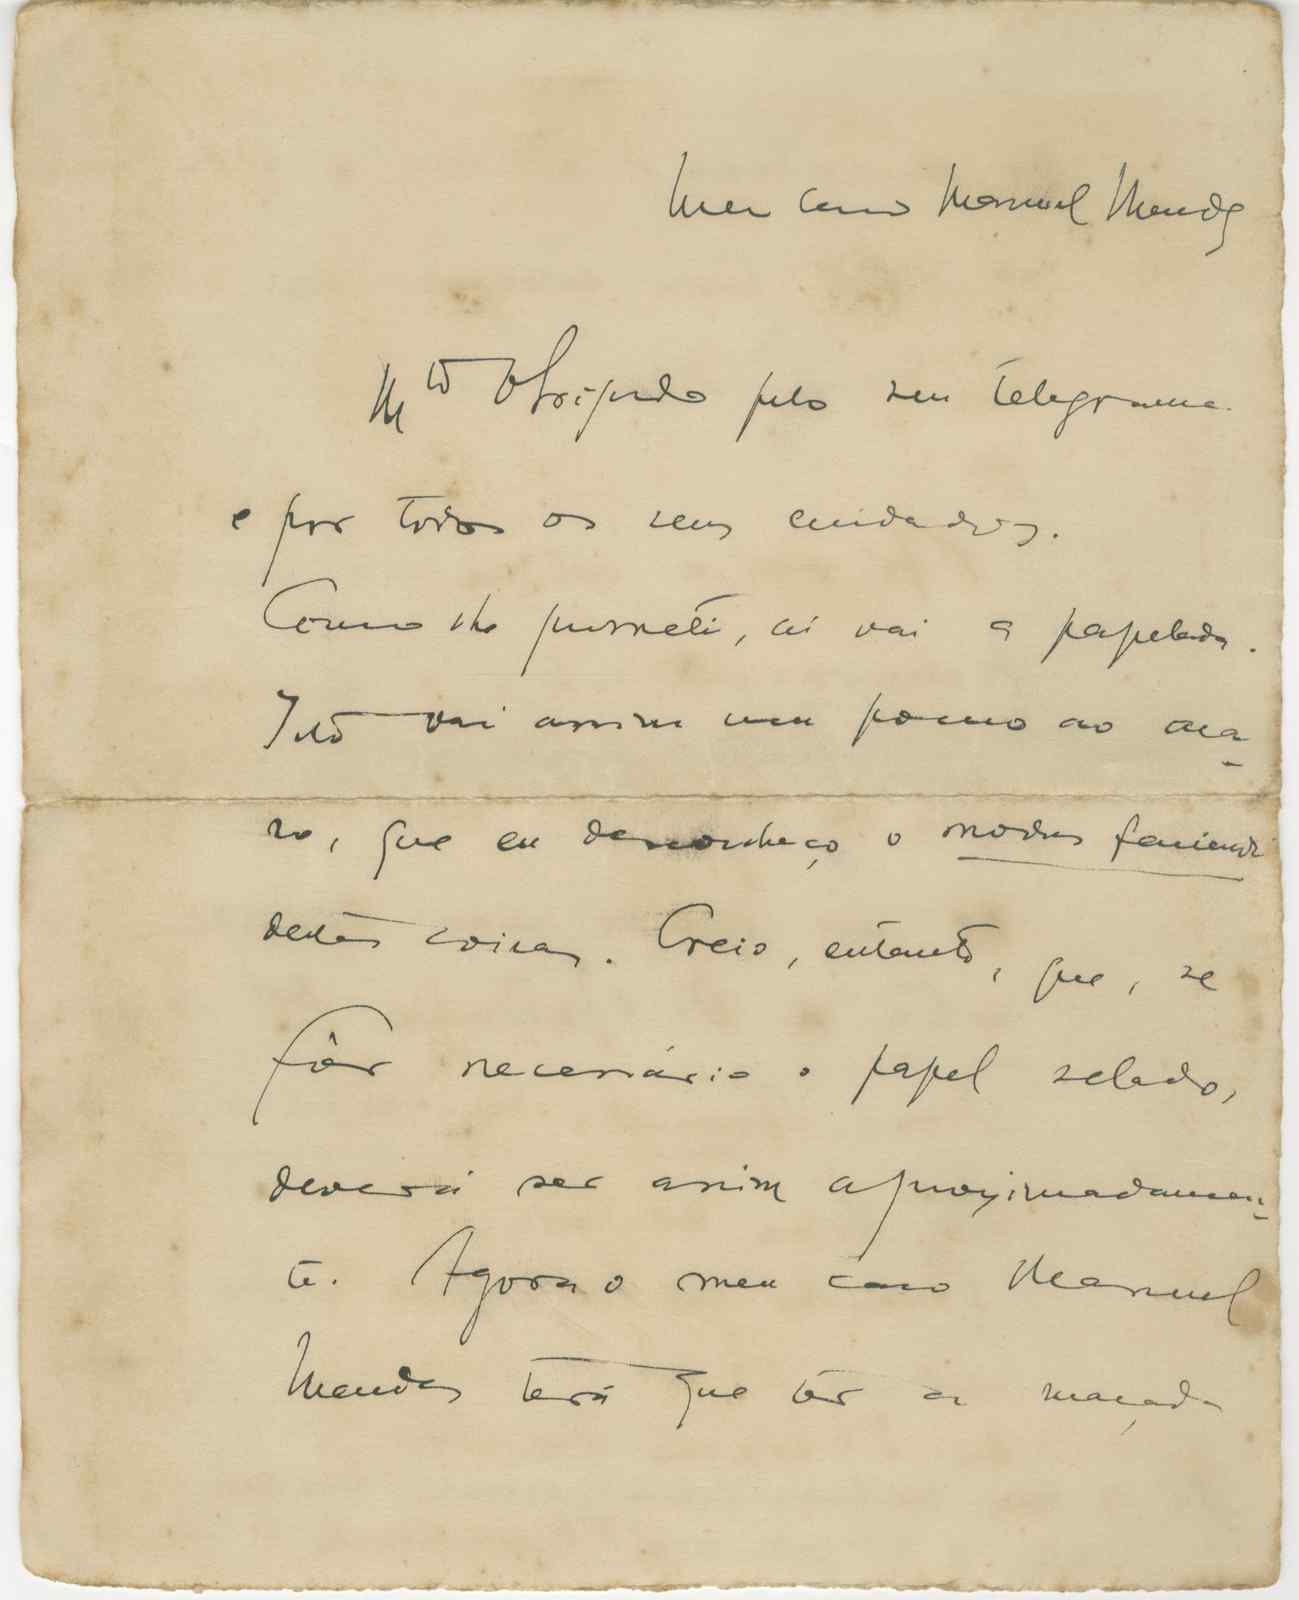 Meu caro Manuel Mendes
Mtº Obrigado pelo seu telegrama
e por todos os seus cuidados.
Como lhe prometi, aí vai a papelada.
Isto vai assim um pouco ao aca-
so, que eu desconheço o modus faciendi
destas coisas. Creio, entanto, que, se
fôr necessário o papel selado,
deverá ser assim aproximadamen-
te. Agora o meu caro Manuel
Mendes terá que ter a maçada